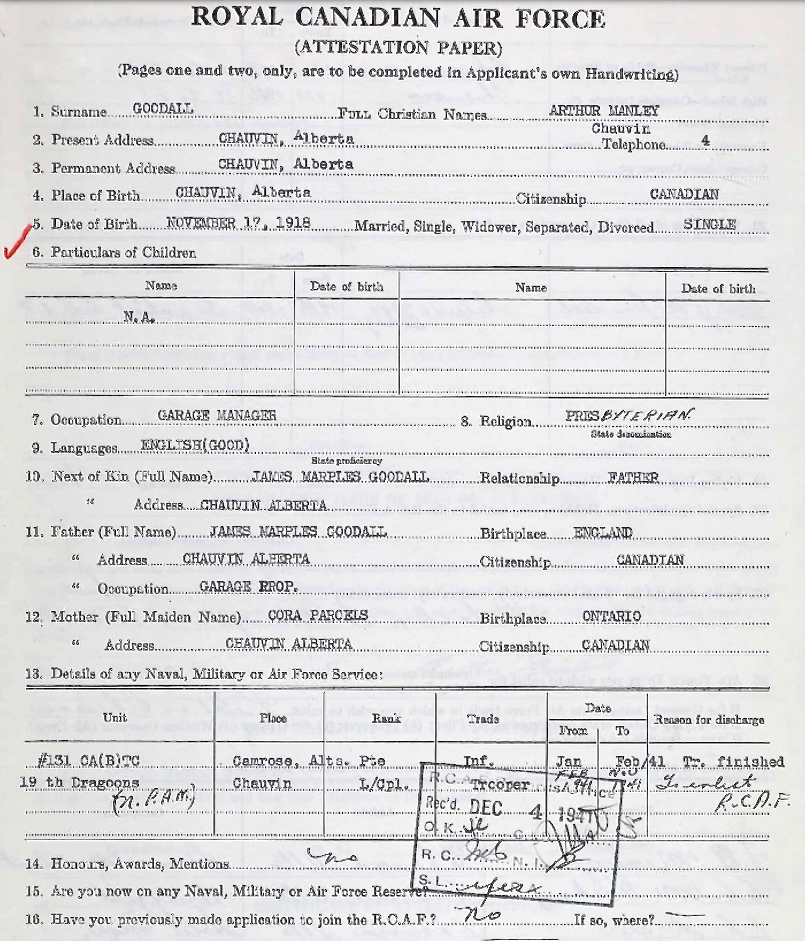 ROYAL CANADIAN AIR FORCE
(ATTESTATION PAPER)
(Pages one and two, only, are to be completed in Applicant's own Handwriting)
1. Surname GOODALL Full Christian Names ARTHUR MANLEY
2. Present Address CHAUVIN, Alberta Chauvin Telephone 4
3. Permanent Address CHAUVIN, Alberta
4. Place of Birth CHAUVIN, Alberta Citizenship CANADIAN
5. Date of Birth NOVEMBER 17, 1918 Married, Single, Widower, Separated, Divorced SINGLE
6. Particulars of Children
Name Date of birth Name Date of birth
N.A.
7. Occupation GARAGE MANAGER 8. Religion PRESBYTERIAN.
State denomination
9. Languages ENGLISH(GOOD)
State proficiency
10. Next of Kin (Full Name) JAMES MARPLES GOODALL Relationship FATHER
" Address CHAUVIN ALBERTA
11. Father (Full Name) JAMES MARPLES GOODALL Birthplace ENGLAND
" Address CHAUVIN ALBERTA Citizenship CANADIAN
" Occupation GARAGE PROP.
12. Mother (Full Maiden Name) CORA PARCELS Birthplace ONTARIO
" Address CHAUVIN ALBERTA Citizenship CANADIAN
13. Details of any Naval, Military or Air Force Service:
Unit Place Rank Trade Date From To Reason for discharge
#131 CA(B)TC Camrose, Alta. Pte Inf. Jan Feb/41 Tr. finished
19 th Dragoons Chauvin L/Cpl. Trooper FEB 41 Nov 41 To enlist
(N.P.A.M.) R.C.A.F.
Rec'd. DEC 4 1941
O.K.
R.C. N.I.
S.L.
14. Honours, Awards, Mentions no
15. Are you now on any Naval, Military or Air Force Reserve?
16. Have you previously made application to join the R.C.A.F.? No If so, where? —